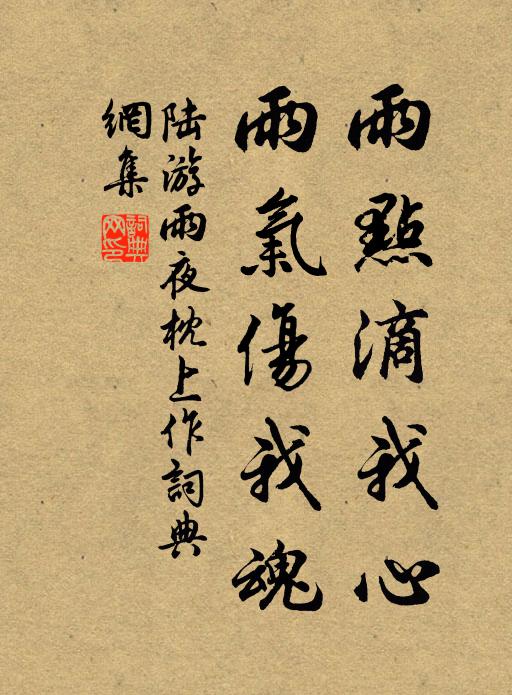 雨點滴我心
雨氣傷我魂
陆游雨夜枕上作詞典
網集
詞典
网印